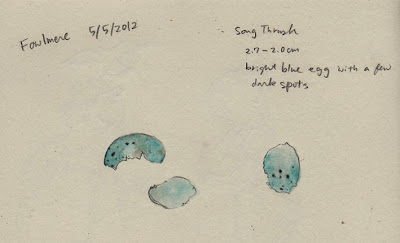 Fowlmere 5/5/2012
Song Thrush
2.7-2.0cm
bright blue egg with a few
dark spots